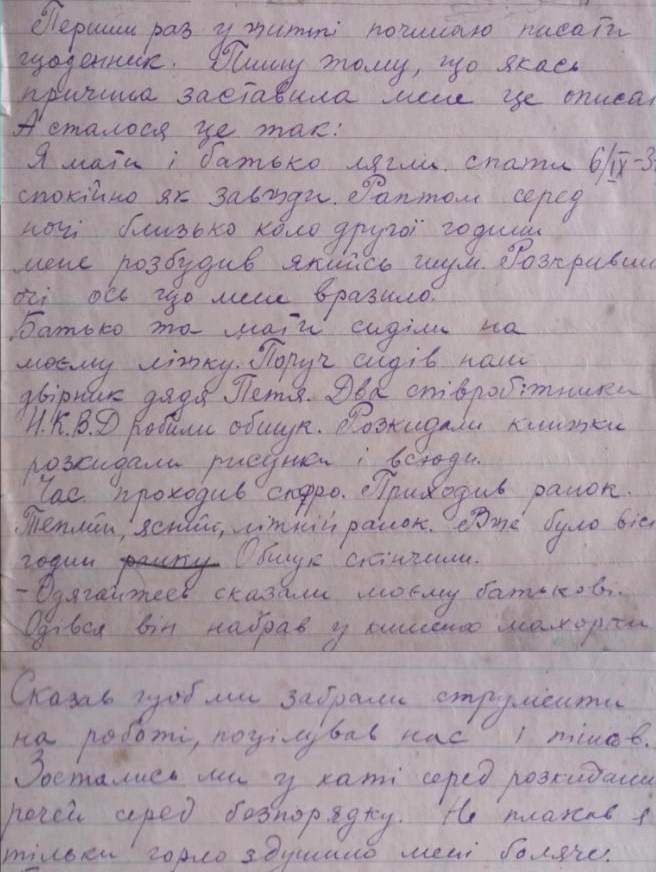 Перший раз у житті починаю писати
щоденник. Пишу тому, що якась
причина заставила мене це описат
А сталося це так:
Я мати і батько лягли спати 6/IX-3
спокійно як завжди. Раптом серед
ночі близько коло другої години
мене розбудив якийсь шум. Розкривши
очі ось що мене вразило.
Батько та мати сиділи на
моєму ліжку. Поруч сидів наш
двірник дядя Петя. Два співробітники
Н.К.В.Д робили обшук. Розкидали книжки
розкидали рисунки і всюди.
Час проходив скоро. Приходив ранок.
Теплий, ясний, літній ранок. Вже було віс
годин ранку Обшук скінчили.
- Одягайтесь сказали моєму батькові.
Одівся він набрав у кишеню махорки
Сказав щоб ми забрали струменти
на роботі, поцілував нас і пішов.
Зостались ми у хаті серед розкидани
речей серед безпорядку. Не плакав я
тільки горло здушило мені боляче.